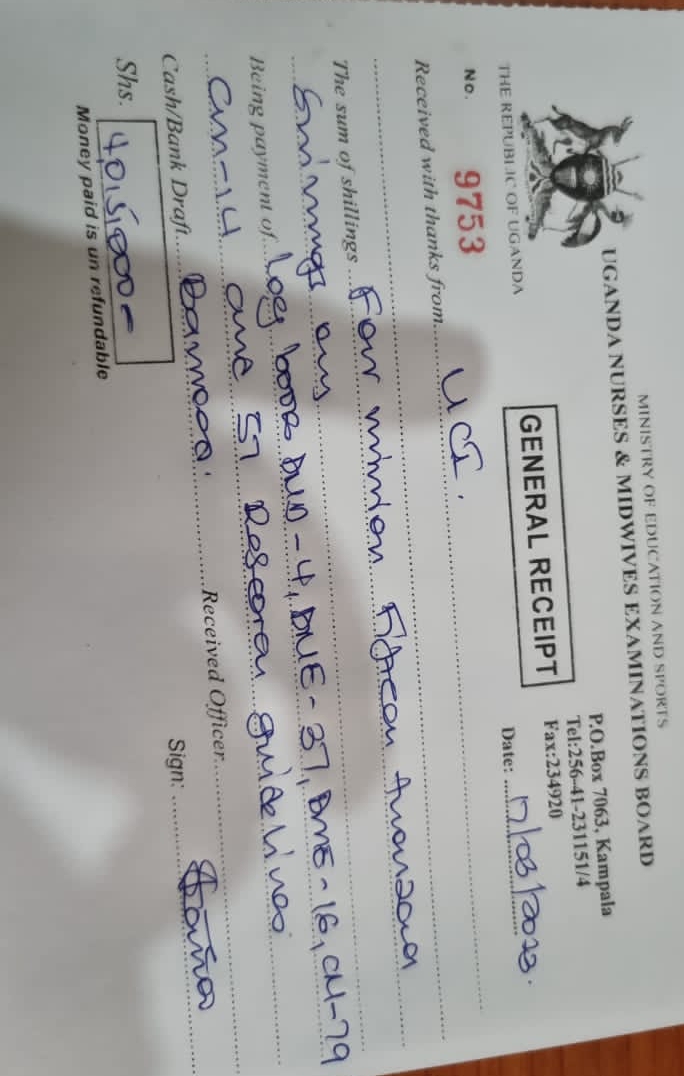 MINISTRY OF EDUCATION AND SPORTS
UGANDA NURSES & MIDWIVES EXAMINATIONS BOARD
P.O.Box 7063, Kampala
Tel:256-41-231151/4
Fax:234920
THE REPUBLIC OF UGANDA
GENERAL RECEIPT
Date: 17/03/2023.
No. 9753
Received with thanks from UCI.
The sum of shillings Four million Fifteen thousand
shillings only
Being payment of Log books DND-4, DNE-37, DME-16, CN-79
CM-14 and 57 Research guidelines
Cash/Bank Draft Received Officer
Shs. 4,015,000= Sign:
Money paid is un refundable